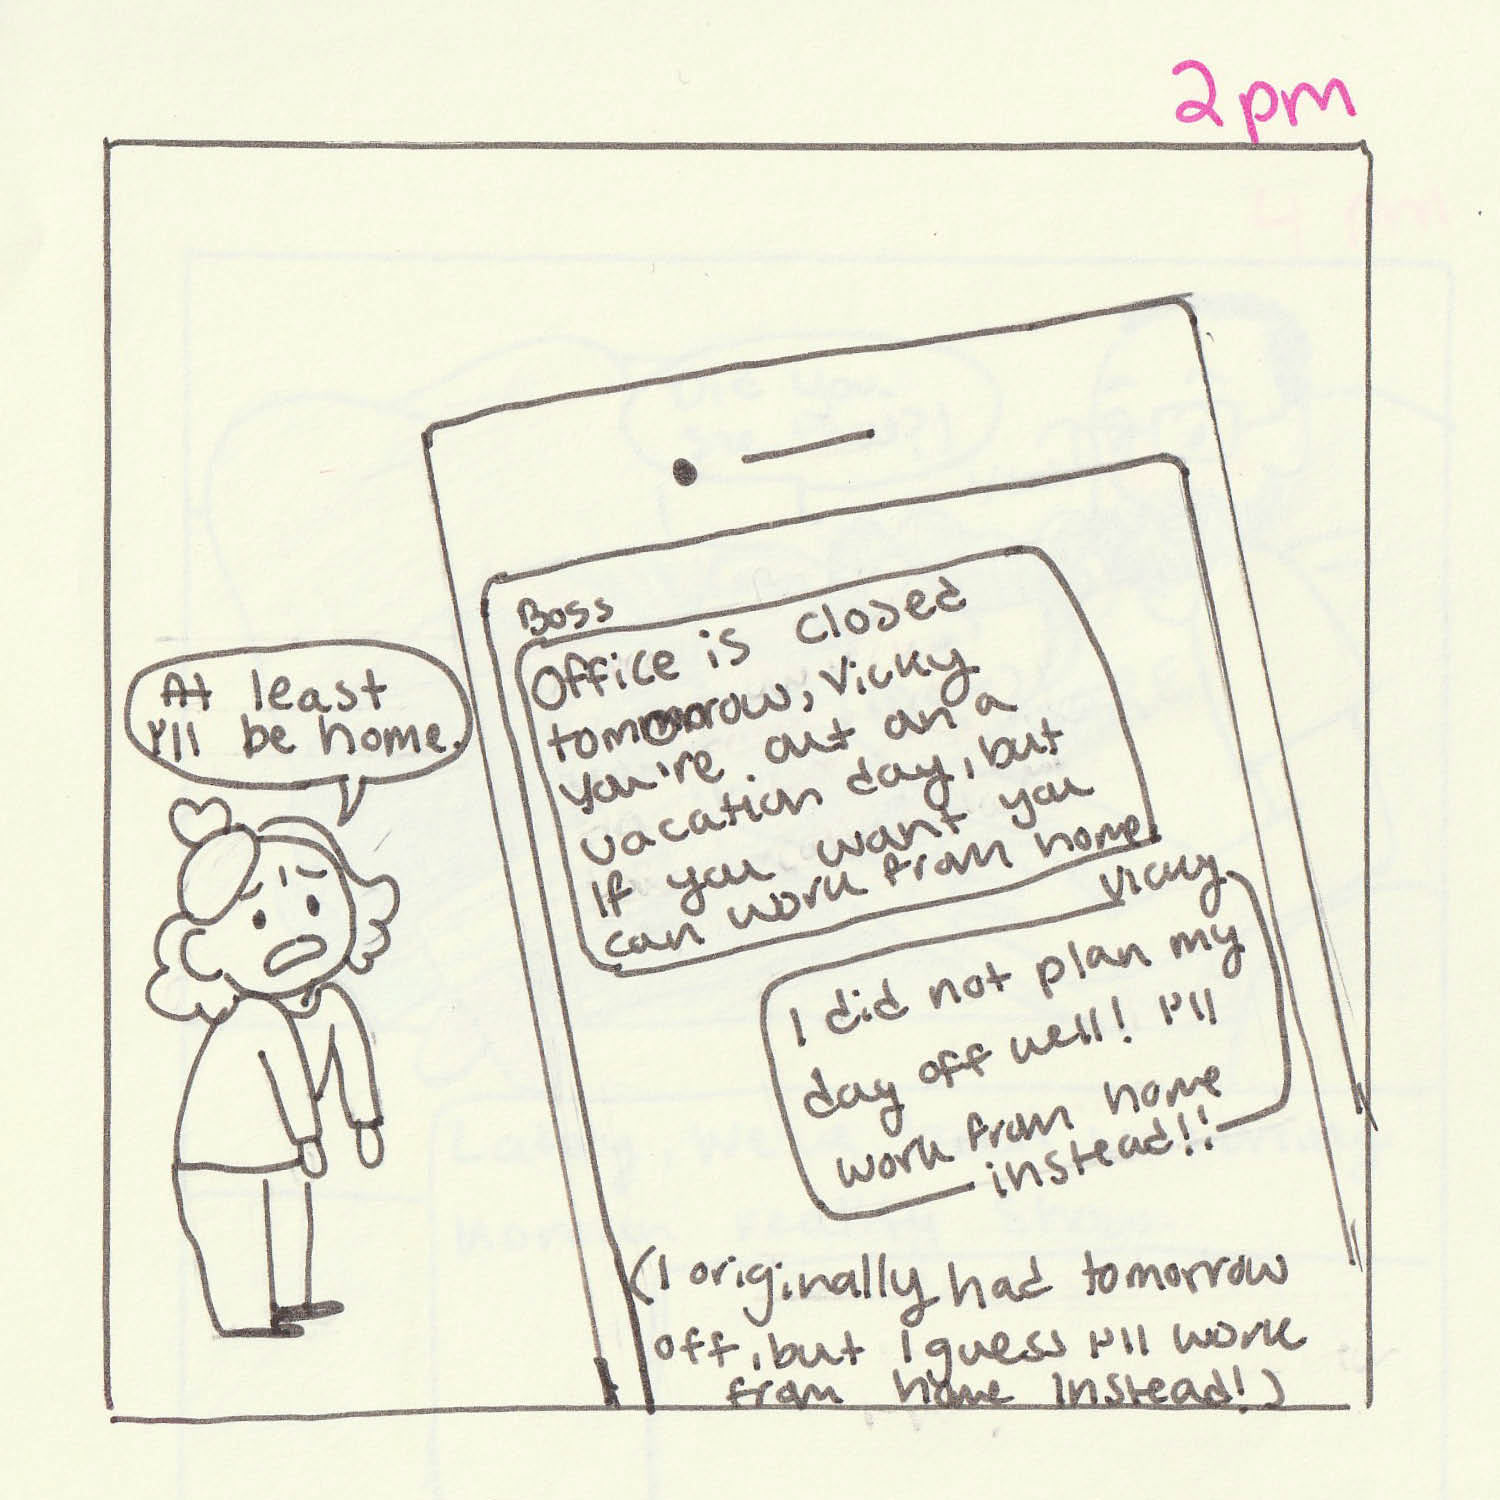 2pm
At least
I'll be home.
Boss
Office is closed
tomorrow, Vicky
you're out on a
vacation day, but
if you want you
can work from home.
Vicky
I did not plan my
day off well! I'll
work from home
instead!!
(I originally had tomorrow
off, but I guess I'll work
from home instead!)